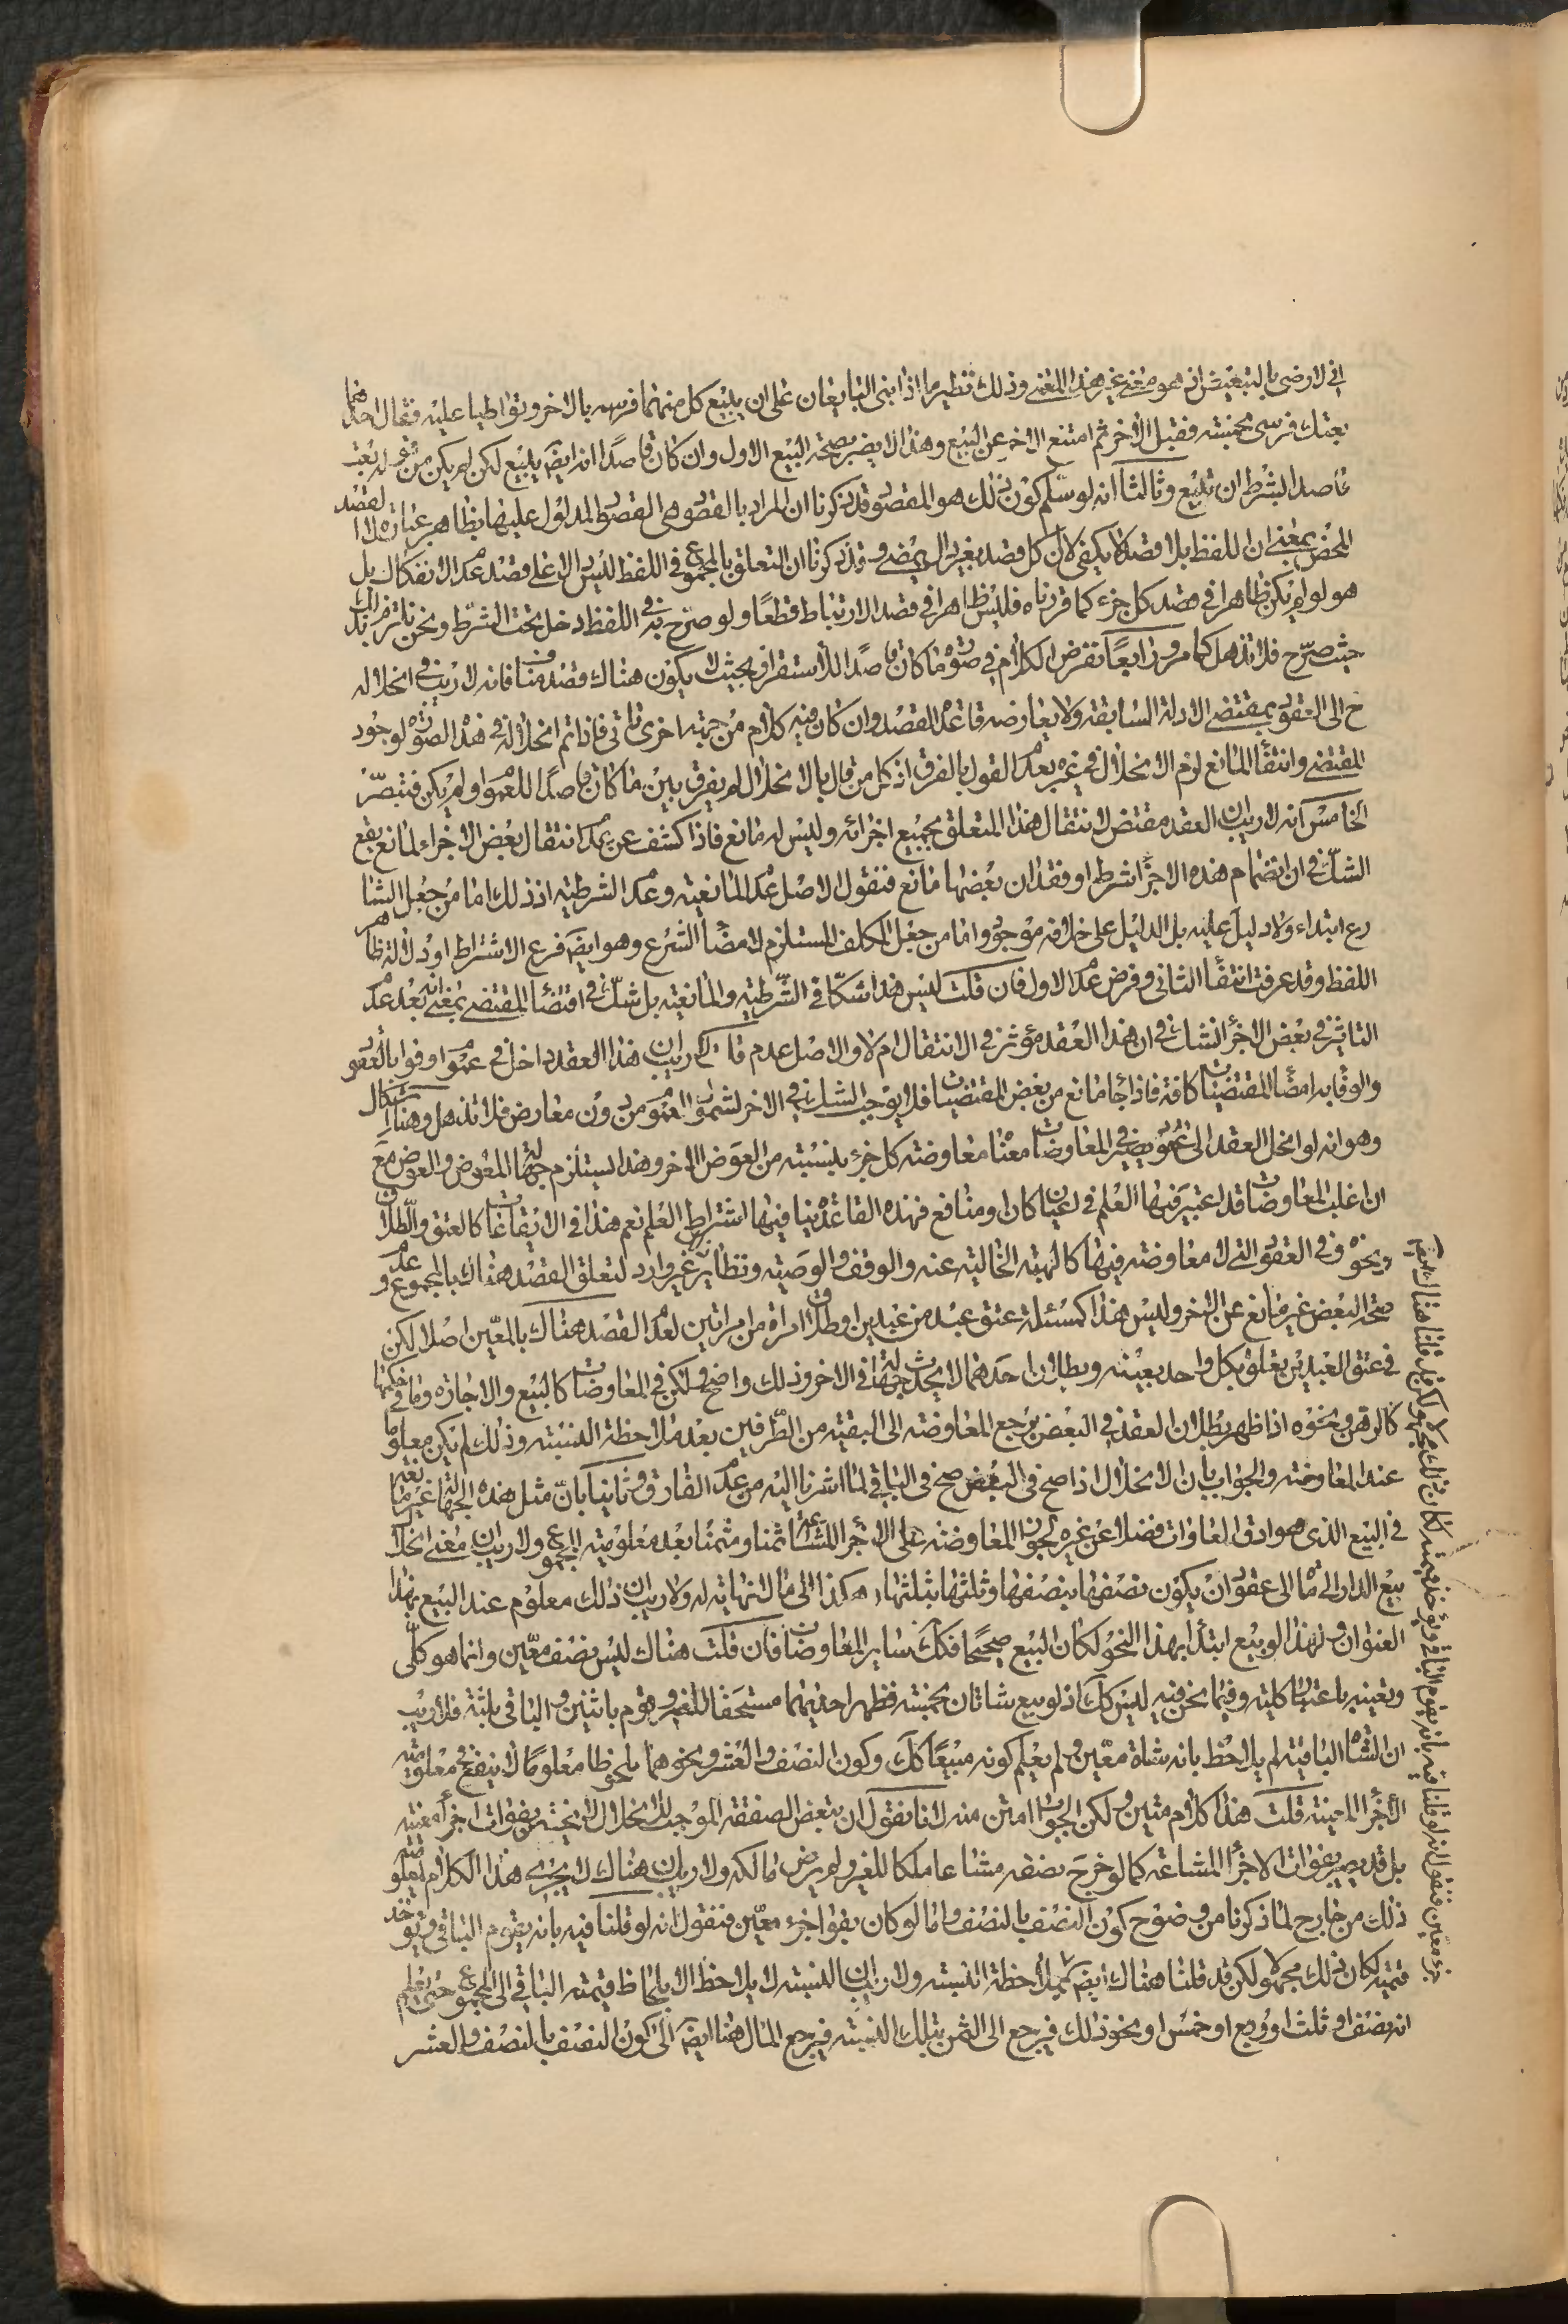 اني لا ارضى بالتبعيض اذ هو معنى غير هذا المعنى وذلك نظير ما اذا بنى المتبايعان على ان يبيع كل منهما فرسه بالاخر وتواطيا عليه فقال احدهما
بعتك فرسى بخمسة فقبل الاخر ثم امتنع الاخر عن البيع وهذا لا يضر بصحة البيع الاول وان كان قاصدا انه ايضا يبيع لكن لم يكن
قاصد الشرط ان تبيع وثالثا انه لو سلم كون ذلك هو المقصود قد ذكرنا ان المراد بالقصود هى القصود المدلول عليها بظاهر عبارة لا القصد
المحض بمعنى ان اللفظ بلا قصد لا يكفى لا ان كل قصد بغير دال يمضى وقد ذكرنا ان التعلق بالمجموع في اللفظ ليس دالا على قصد عدم الانفكاك بل
هو لو لم يكن ظاهرا في قصد كل جزء كما قررناه فليس ظاهرا في قصد الارتباط قطعا ولو صرح به في اللفظ دخل تحت الشرط ونحن نلتزم بذلك
حيث صرح فلا تذهل كما مر ورابعا نفرض الكلام في صورة ما كان قاصدا للاستقرار بحيث لا يكون هناك قصد مناف فانه لا ريب في انحلاله
ح الى العقود بمقتضى الادلة السابقة ولا يعارضه قاعدة القصد وان كان فيه كلام من جهة اخرى تاتى فاذا تم انحلاله في هذه الصورة لوجود
المقتضى وانتفاء المانع لزم الانحلال في غيره بعدم القول بالفرق اذ كل من قال بالانحلال لم يفرق بين ما كان قاصدا للعموم او لم يكن فتبصر
الخامس انه لا ريب ان العقد مقتض لانتقال هذا المتعلق بجميع اجزائه وليس له مانع فاذا كشف عن عدم انتقال بعض الاجزاء لمانع يقع
الشك في ان انضمام هذه الاجزاء شرط او فقدان بعضها مانع فنقول الاصل عدم المانعية وعدم الشرطية اذ ذلك اما من جعل الشا
رع ابتداء ولا دليل عليه بل الدليل على خلافه موجود واما من جعل المكلف المستلزم لامضاء الشرع وهو ايضا فرع الاشتراط او دلالة ظاهر
اللفظ وقد عرفت انتفاء الثانى وفرض عدم الاول فان قلت ليس هذا شكا في الشرطية والمانعية بل شك في اقتضاء المقتضى بمعنى انه بعد عدم
التاثير في بعض الاجزاء نشك في ان هذا العقد مؤثر في الانتقال ام لا والاصل عدمه قلت لا ريب ان هذا العقد داخل في عموم اوفوا بالعقود
والوفا به امضاء المقتضيات كافة فاذا جاء مانع من بعض المقتضيات فلا يوجب الشك في الاخر لشمول العموم من دون معارض فلا تذهل وهنا اشكال
وهو انه لو انحل العقد الى عقود يصير في المعاوضات معناه معاوضة كل جزء بنسبته من العوض الاخر وهذا يستلزم جهالة المعوض والعوض مع
ان اغلب المعاوضات قد اعتبر فيها العلم في اعيان كان او منافع فهذه القاعدة ينافيها اشتراط العلم نعم هذا في الايقاعات كالعتق والطلاق
ونحوه وفي العقود التى لا معاوضة فيها كالهبة الخالية عنه والوقف والوصية ونظائره غير وارد لتعلق القصد هناك بالمجموع و عدم
صحة البعض غير مانع عن الاخر وليس هذا كمسئلة عتق عبد من عبدين او طلاق امراة من امراتين لعدم القصد هناك بالمعين اصلا لكن
في عتق العبدين يعلق بكل واحد بعينه وبطلان احدهما لا يحدث جهالة في الاخر وذلك واضح ولكن في المعاوضات كالبيع والاجارة وما في حكمهما
كالرهن ونحوه اذا ظهر بطلان العقد في البعض يرجع المعاوضة الى البقية من الطرفين بعد ملاحظة النسبة وذلك لم يكن معلوما
عند المعاوضة والجواب بان الانحلال اذا صح في البعض صح في الباقى لما اشرنا اليه من عدم الفارق وثانيا بان مثل هذه الجهالة غير مانعة
في البيع الذى هو ادق المعاوضات فضلا عن غيره لجواز المعاوضة على الاجزاء المشاعة ثمنا ومثمنا بعد معلومية المجموع ولا ريب ان معنى انحلال
بيع الدار الى ماة الى عقود ان يكون نصفها بنصفها وثلثها بثلثها وهكذا الى ما لا نهاية له ولا ريب ان ذلك معلوم عند البيع بهذا
العنوان ولهذا لو بيع ابتداء بهذا النحو لكان البيع صحيحا فكك ساير المعاوضات فان قلت هناك ليس نصف معين وانما هو كلى
وتعينه باعتبار كليته وفيما نحن فيه ليس كك اذ لو بيع شاتان بخمسة فظهر احديهما مستحقا للغير وهو يقوم باثنين والباقى بثلثة فلا ريب
ان الشاة الباقية لم يلاحظ بانه شاة معين ولم يعلم كونه مبيعا كك وكون النصف والعشر ونحوهما ملحوظا معلوما لا ينفع في معلومية
الاجزاء المعينة قلت هذا كلام متين ولكن الجواب امتن منه لانا نقول ان تبعض الصفقة الموجب للانحلال لا ينحصر بفوات اجزاء معينة
بل قد يصير بفوات الاجزاء المشاعة كما لو خرج نصفه مشاعا ملكا للغير ولم يرض مالكه ولا ريب ان هناك لا يجرى هذا الكلام لمعلومية
ذلك من خارج لما ذكرنا من وضوح كون النصف بالنصف واما لو كان بفوات جزء معين فنقول انه لو قلنا فيه بانه يقوم الباقى ويؤخذ
قيمته لكان ذلك مجهولا ولكن قد قلنا هناك ايضا بملاحظة النسبة ولا ريب ان النسبة لا يلاحظ الا بلحاظ قيمة الباقى الى المجموع حتى يعلم
انه نصف او ثلث او ربع او خمس او نحو ذلك فيرجع الى الثمن بتلك النسبة فيرجع المال هنا ايضا الى كون النصف بالنصف والعشر
جزء معين فنقول انه لو قلنا فيه بانه يقوم الباقى ويؤخذ قيمته لكان ذلك مجهولا ولكن قد قلنا هناك ايضا